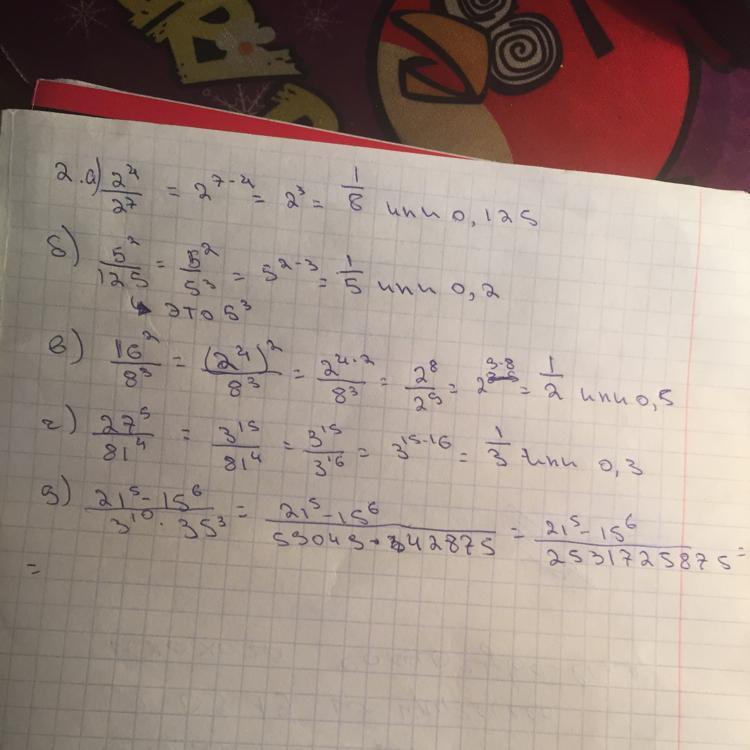 2.а) 2^4/2^7 = 2^(7-4) = 2^3 = 1/8 или 0,125
б) 5^2/125 = 5^2/5^3 = 5^(2-3) = 1/5 или 0,2
↳ это 5^3
в) 16^2/8^3 = (2^4)^2/8^3 = 2^(4·2)/8^3 = 2^8/2^9 = 2^(9-8) = 1/2 или 0,5
г) 27^5/81^4 = 3^15/81^4 = 3^15/3^16 = 3^(15-16) = 1/3 или 0,3
д) (21^5-15^6)/(3^10·35^3) = (21^5-15^6)/(59049·42875) = (21^5-15^6)/2531725875 =
=